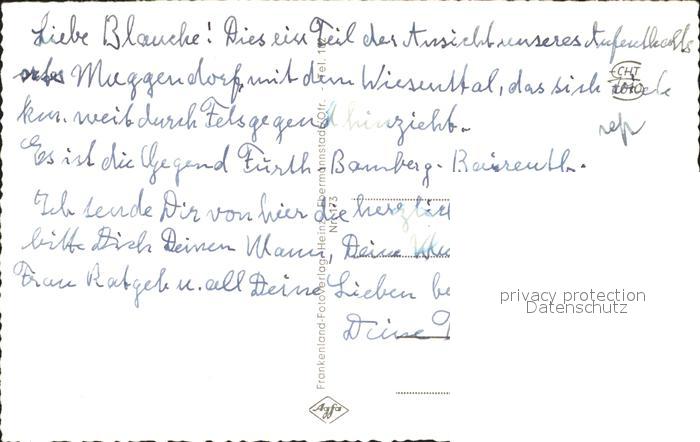 Liebe Blanche! Dies ein Teil der Ansicht unseres Aufenthalts
ortes Muggendorf, mit dem Wiesenttal, das sich viele
km. weit durch Felsgegend hinzieht.
Es ist die Gegend Fürth-Bamberg-Baireuth.
Ich sende Dir von hier die herzlich
bitte Dich Deinen Mann, Deine
Frau Ratgeb u. all Deine Lieben be
Deine
Frankenland-Fotoverlag Heinz Ebermannstadt/Ofr. - Tel.
Nr. 173
Agfa
ECHT
FOTO
privacy protection
Datenschutz